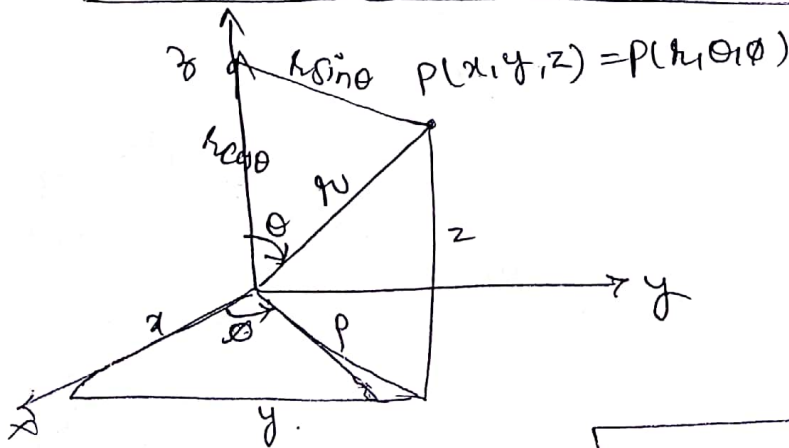 z r sinθ P(x, y, z) = P(r, θ, φ)
r cosθ
r
θ
z
y
x φ ρ
x
y.